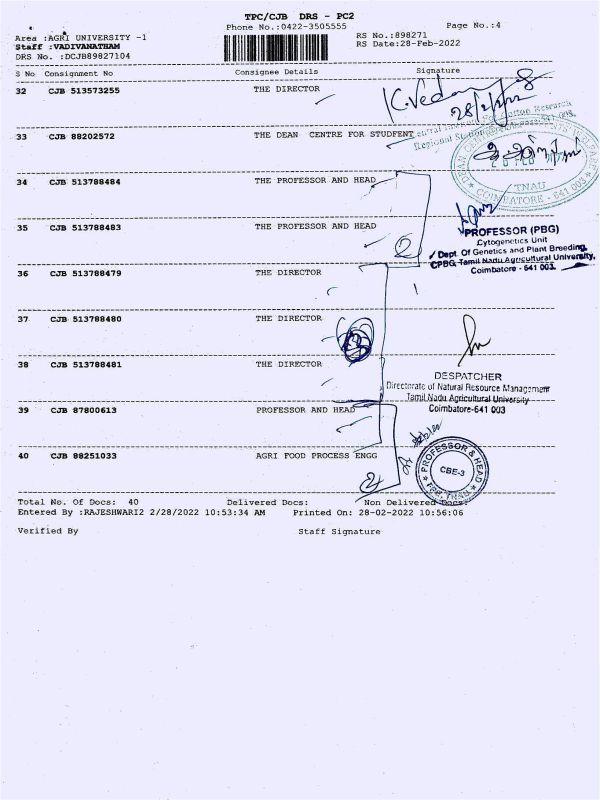 TPC/CJB DRS - PC2
Phone No.:0422-3505555
Page No.:4
Area :AGRI UNIVERSITY -1
RS No.:898271
Staff :VADIVANATHAM
RS Date:28-Feb-2022
DRS No. :DCJB89827104
S No Consignment No Consignee Details Signature
32 CJB 513573255 THE DIRECTOR
K.Vedan
28/2/22
33 CJB 88202572 THE DEAN CENTRE FOR STUDFENT
34 CJB 513788484 THE PROFESSOR AND HEAD
TNAU
COIMBATORE - 641 003
35 CJB 513788483 THE PROFESSOR AND HEAD
2
PROFESSOR (PBG)
Cytogenetics Unit
Dept. Of Genetics and Plant Breeding,
CPBG, Tamil Nadu Agricultural University,
Coimbatore - 641 003.
36 CJB 513788479 THE DIRECTOR
37 CJB 513788480 THE DIRECTOR
38 CJB 513788481 THE DIRECTOR
DESPATCHER
Directorate of Natural Resource Management
Tamil Nadu Agricultural University
Coimbatore-641 003
39 CJB 87800613 PROFESSOR AND HEAD
40 CJB 88251033 AGRI FOOD PROCESS ENGG
2
PROFESSOR & HEAD
CBE-3
TNAU
Total No. Of Docs: 40 Delivered Docs: Non Delivered Docs:
Entered By :RAJESHWARI2 2/28/2022 10:53:34 AM Printed On: 28-02-2022 10:56:06
Verified By Staff Signature